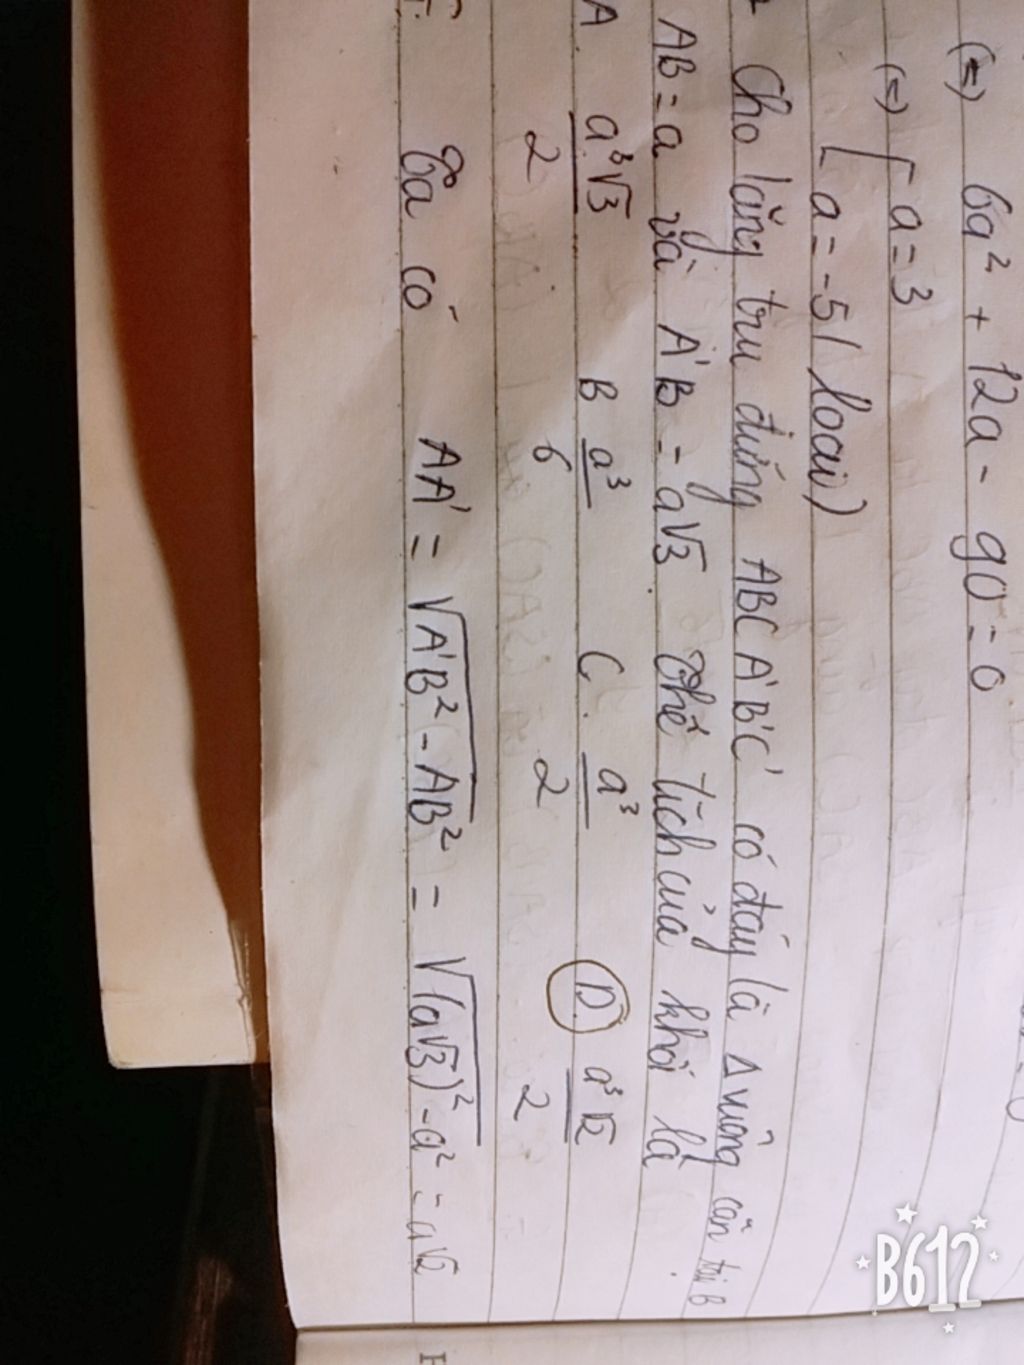 (=) 6a² + 12a - 90 = 0
(=) [ a = 3
[ a = -5 ( loại )
Cho lăng trụ đứng ABC A'B'C' có đáy là Δ vuông cân tại B
AB = a và A'B = a√3 Thể tích của khối là
A a³√3/2 B a³/6 C. a³/2 D. a³√2/2
Ta có AA' = √A'B² - AB² = √(a√3)² - a² = a√2
B612